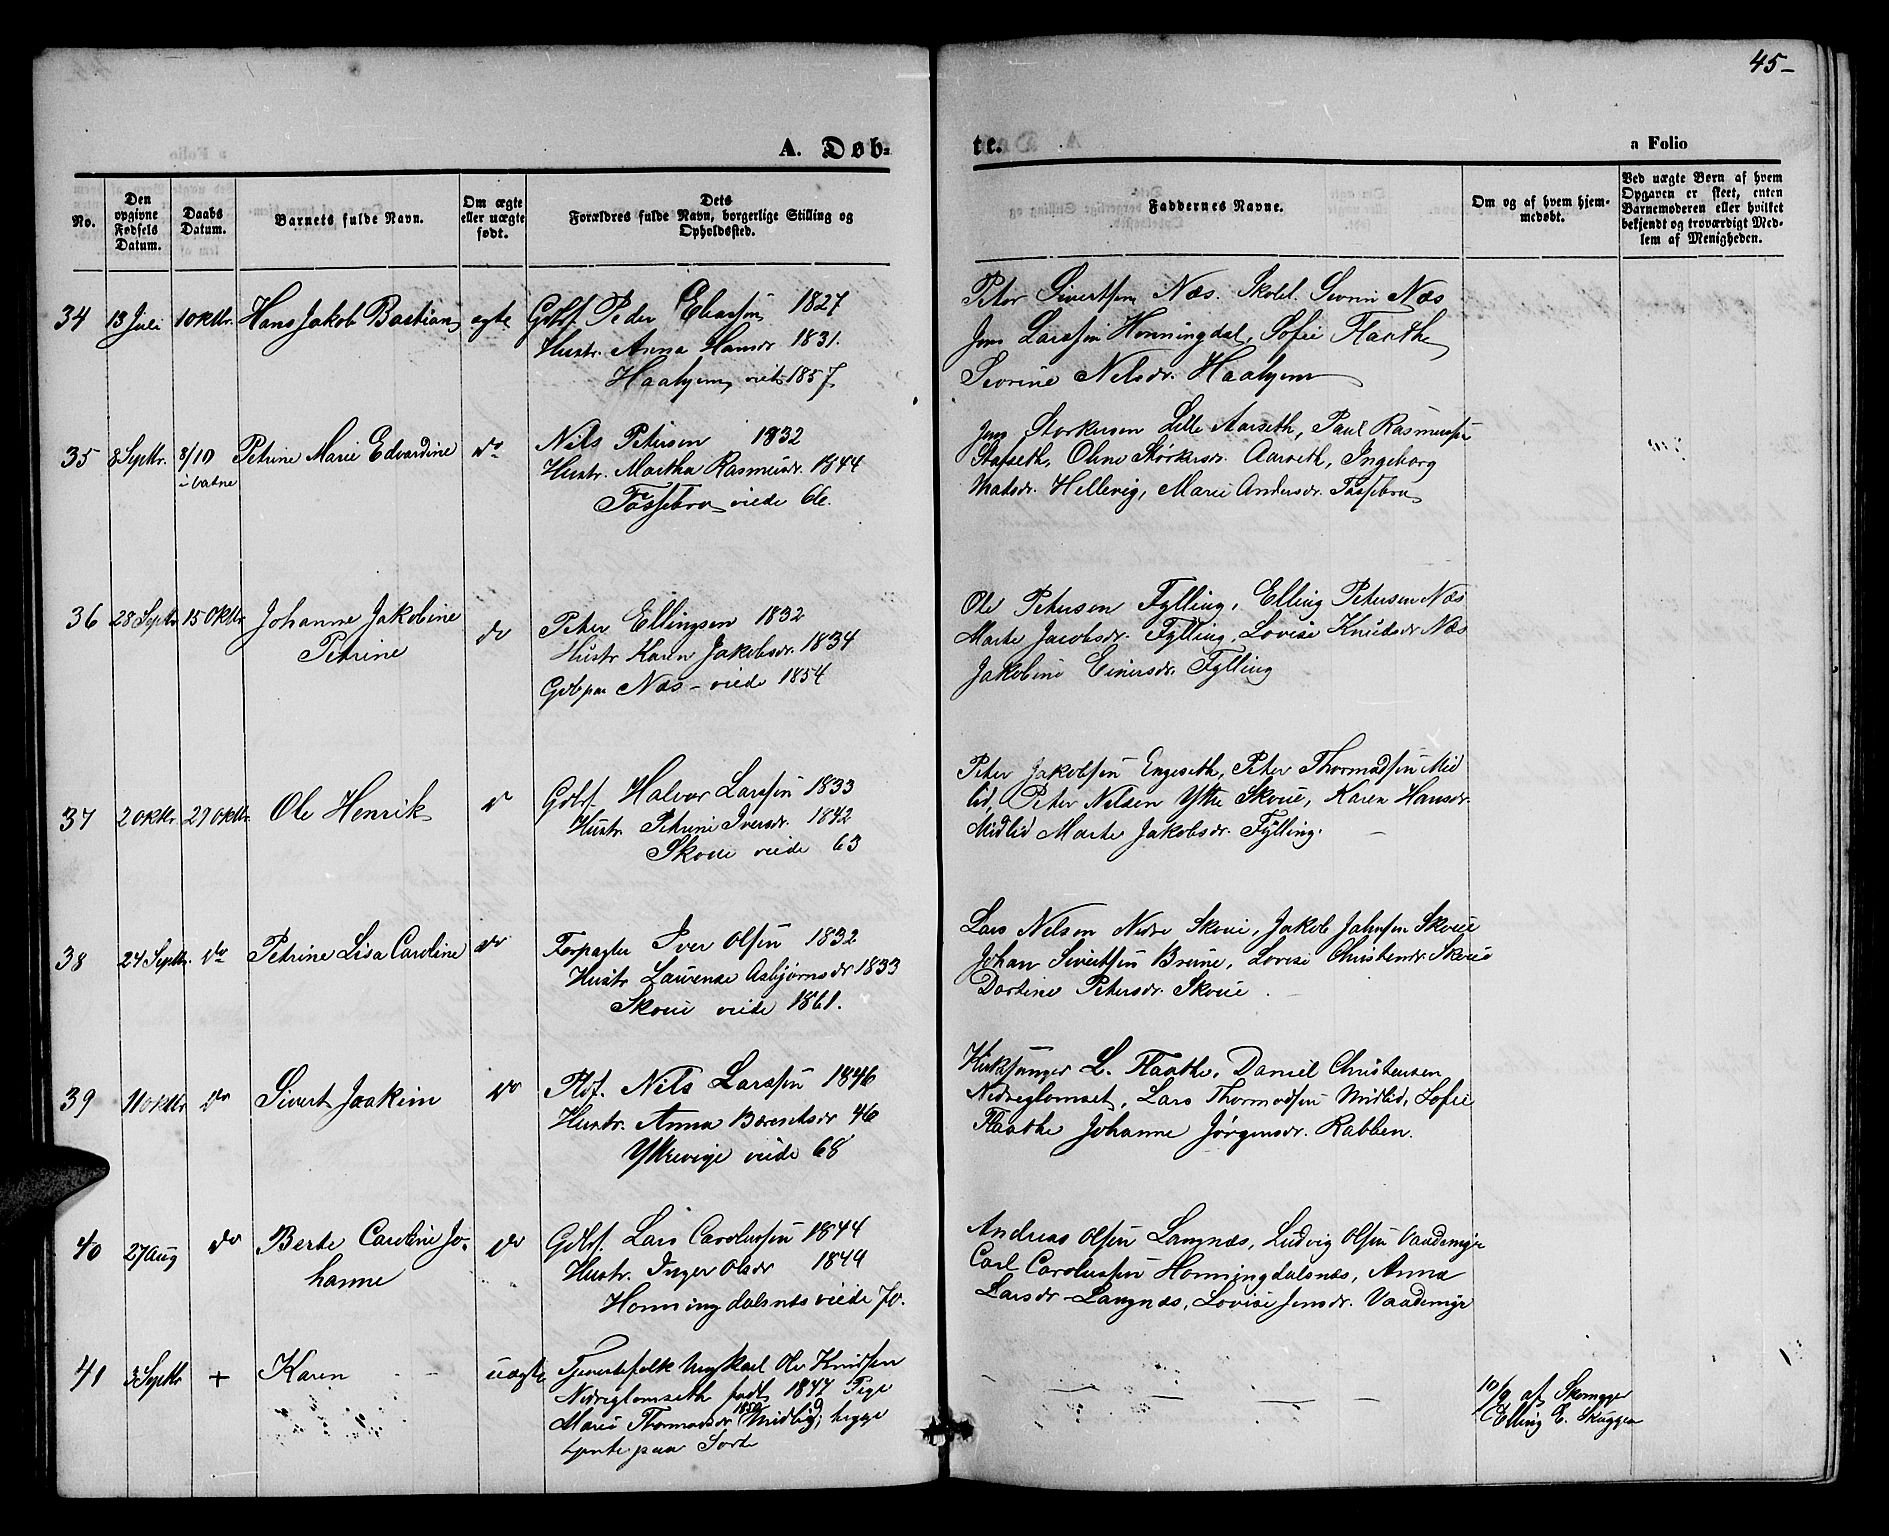 45-
A. Døb-
te.
a Folio
No.
Den opgivne Fødsels Datum.
Daabs Datum.
Barnets fulde Navn.
Om ægte eller uægte født.
Dets Forældres fulde Navn, borgerlige Stilling og Opholdssted.
Faddernes Navne.
Om og af hvem hjemmedøbt.
Ved uægte Børn af hvem Opgaven er skeet, enten Barnemoderen eller hvilket bekjendt og troværdigt Medlem af Menigheden.
34 13 Juli 1 Oktbr. Hans Jakob Bastian ægte Gdbr. Peder Eliassen 1827
Hustr. Anna Hansdr 1831.
Haahjem viet 1857
Peter Sivertsen Næs. Skolel. Sevrin Næs
Jens Larssen Honningdal, Sofie Flaathe
Sevrine Nelsdr. Haahjem
35 8 Septbr. 8/10 i Vatne Petrine Marie Edvardine do Nils Petersen 1832
Hustr. Martha Rasmusdr. 1844
Fossebro viede 66.
Jens Storkersen Lille Aarseth, Paul Rasmussen
Stafseth, Oline Størkersdr. Aarseth, Ingeborg
Madsdr. Hellevig, Marie Andersdr. Fossebro
36 28 Septbr 15 Oktbr. Johanne Jakobine
Petrine do Peter Ellingsen 1832
Hustr Karen Jakobsdr. 1834
Gdb paa Næs - viede 1854
Ole Petersen Fylling, Elling Petersen Næs
Marte Jacobsdr. Fylling, Lovise Knudsdr Næs
Jakobine Einersdr. Fylling
37 2 Oktbr. 29 Oktbr. Ole Henrik do Gdbr. Halvor Larssen 1833
Hustr Petrine Iversdr. 1842
Skoue viede 63
Peter Jakobsen Engeseth, Peter Thormodsen Mid
lid, Peter Nelsen Yttre Skoue, Karen Hansdr.
Midlid Marte Jakobsdr. Fylling.
38 24 Septbr. do Petrine Lisa Caroline do Forpagter Iver Olsen 1832
Hustr Laurense Asbjørnsdr 1833
Skoue viede 1861.
Lars Nelson Nedre Skoue, Jakob Johnsen Skoue
Johan Sivertsen Brune, Lovise Christensdr Skoue
Dortine Petersdr. Skoue.
39 11 Oktbr do Sivert Joakim do Pldf. Nils Larssen 1846
Hustr. Anna Berentsdr 46
Yttrevige viede 68
Kirksanger L. Flaathe, Daniel Christensen
Nedreglomset, Lars Thormodsen Midlid, Sofie
Flaathe Johanne Jørgensdr. Rabben.
40 27 Aug do Berte Caroline Jo-
hanne do Gdbr. Lars Carolussen 1844
Hustr. Inger Olsdr 1849
Honningdalsnes viede 70.
Andreas Olsen Langnæs, Ludvig Olsen Vaademyr
Carl Carolussen Honningdalsnæs, Anna
Larsdr Langnæs, Lovise Jensdr. Vaademyr
41 3 Septbr + Karen uægte Tjenestefolk Ungkarl Ole Knudsen
Nedreglomseth født 1847 Pige
Marie Thormodsdr 1850 Midlid; begge
tjente paa Sorte
10/9 af Skomager
Elling E. Skuggen